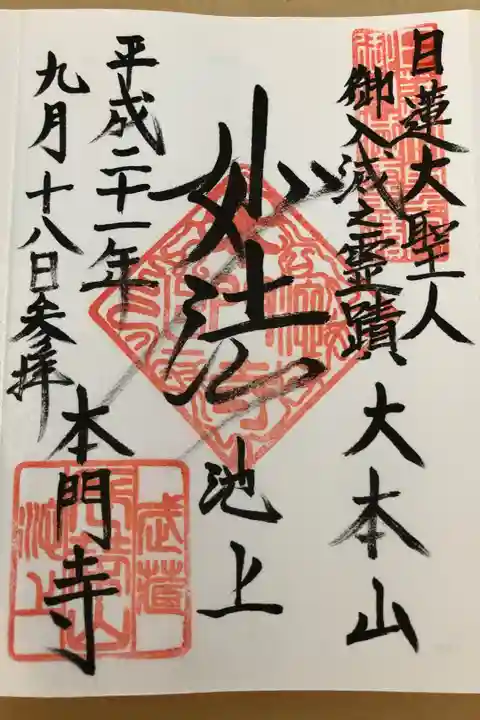 日蓮大聖人
御入滅之霊蹟
大本山
妙法
池上
本門寺
平成二十一年
九月十八日参拝
武蔵
池上